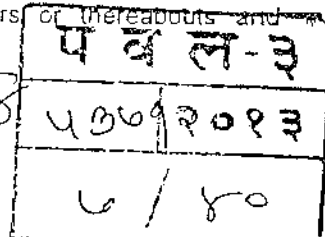 rs or thereabouts and
प व ल-३
५३७१ २०१३
७/४०